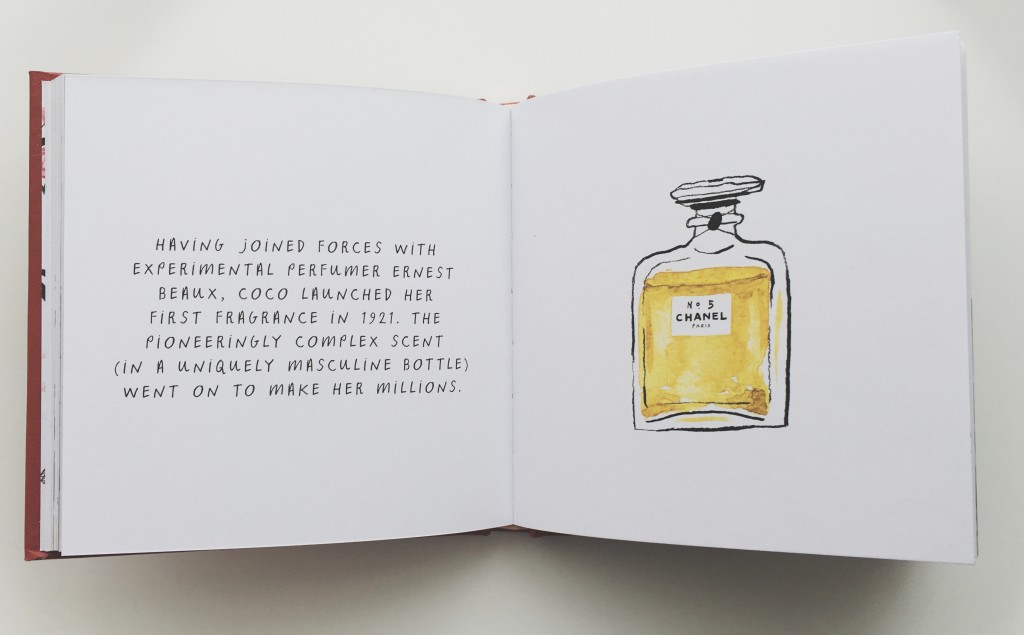 HAVING JOINED FORCES WITH
EXPERIMENTAL PERFUMER ERNEST
BEAUX, COCO LAUNCHED HER
FIRST FRAGRANCE IN 1921. THE
PIONEERINGLY COMPLEX SCENT
(IN A UNIQUELY MASCULINE BOTTLE)
WENT ON TO MAKE HER MILLIONS.
Nº 5
CHANEL
PARIS